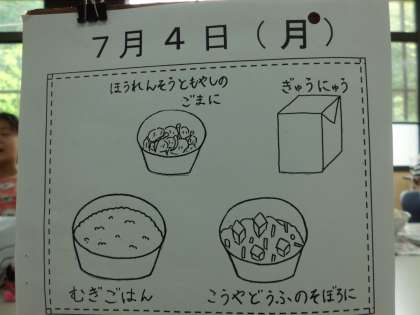 7月4日（月）
ほうれんそうともやしの
ごまに
ぎゅうにゅう
むぎごはん
こうやどうふのそぼろに